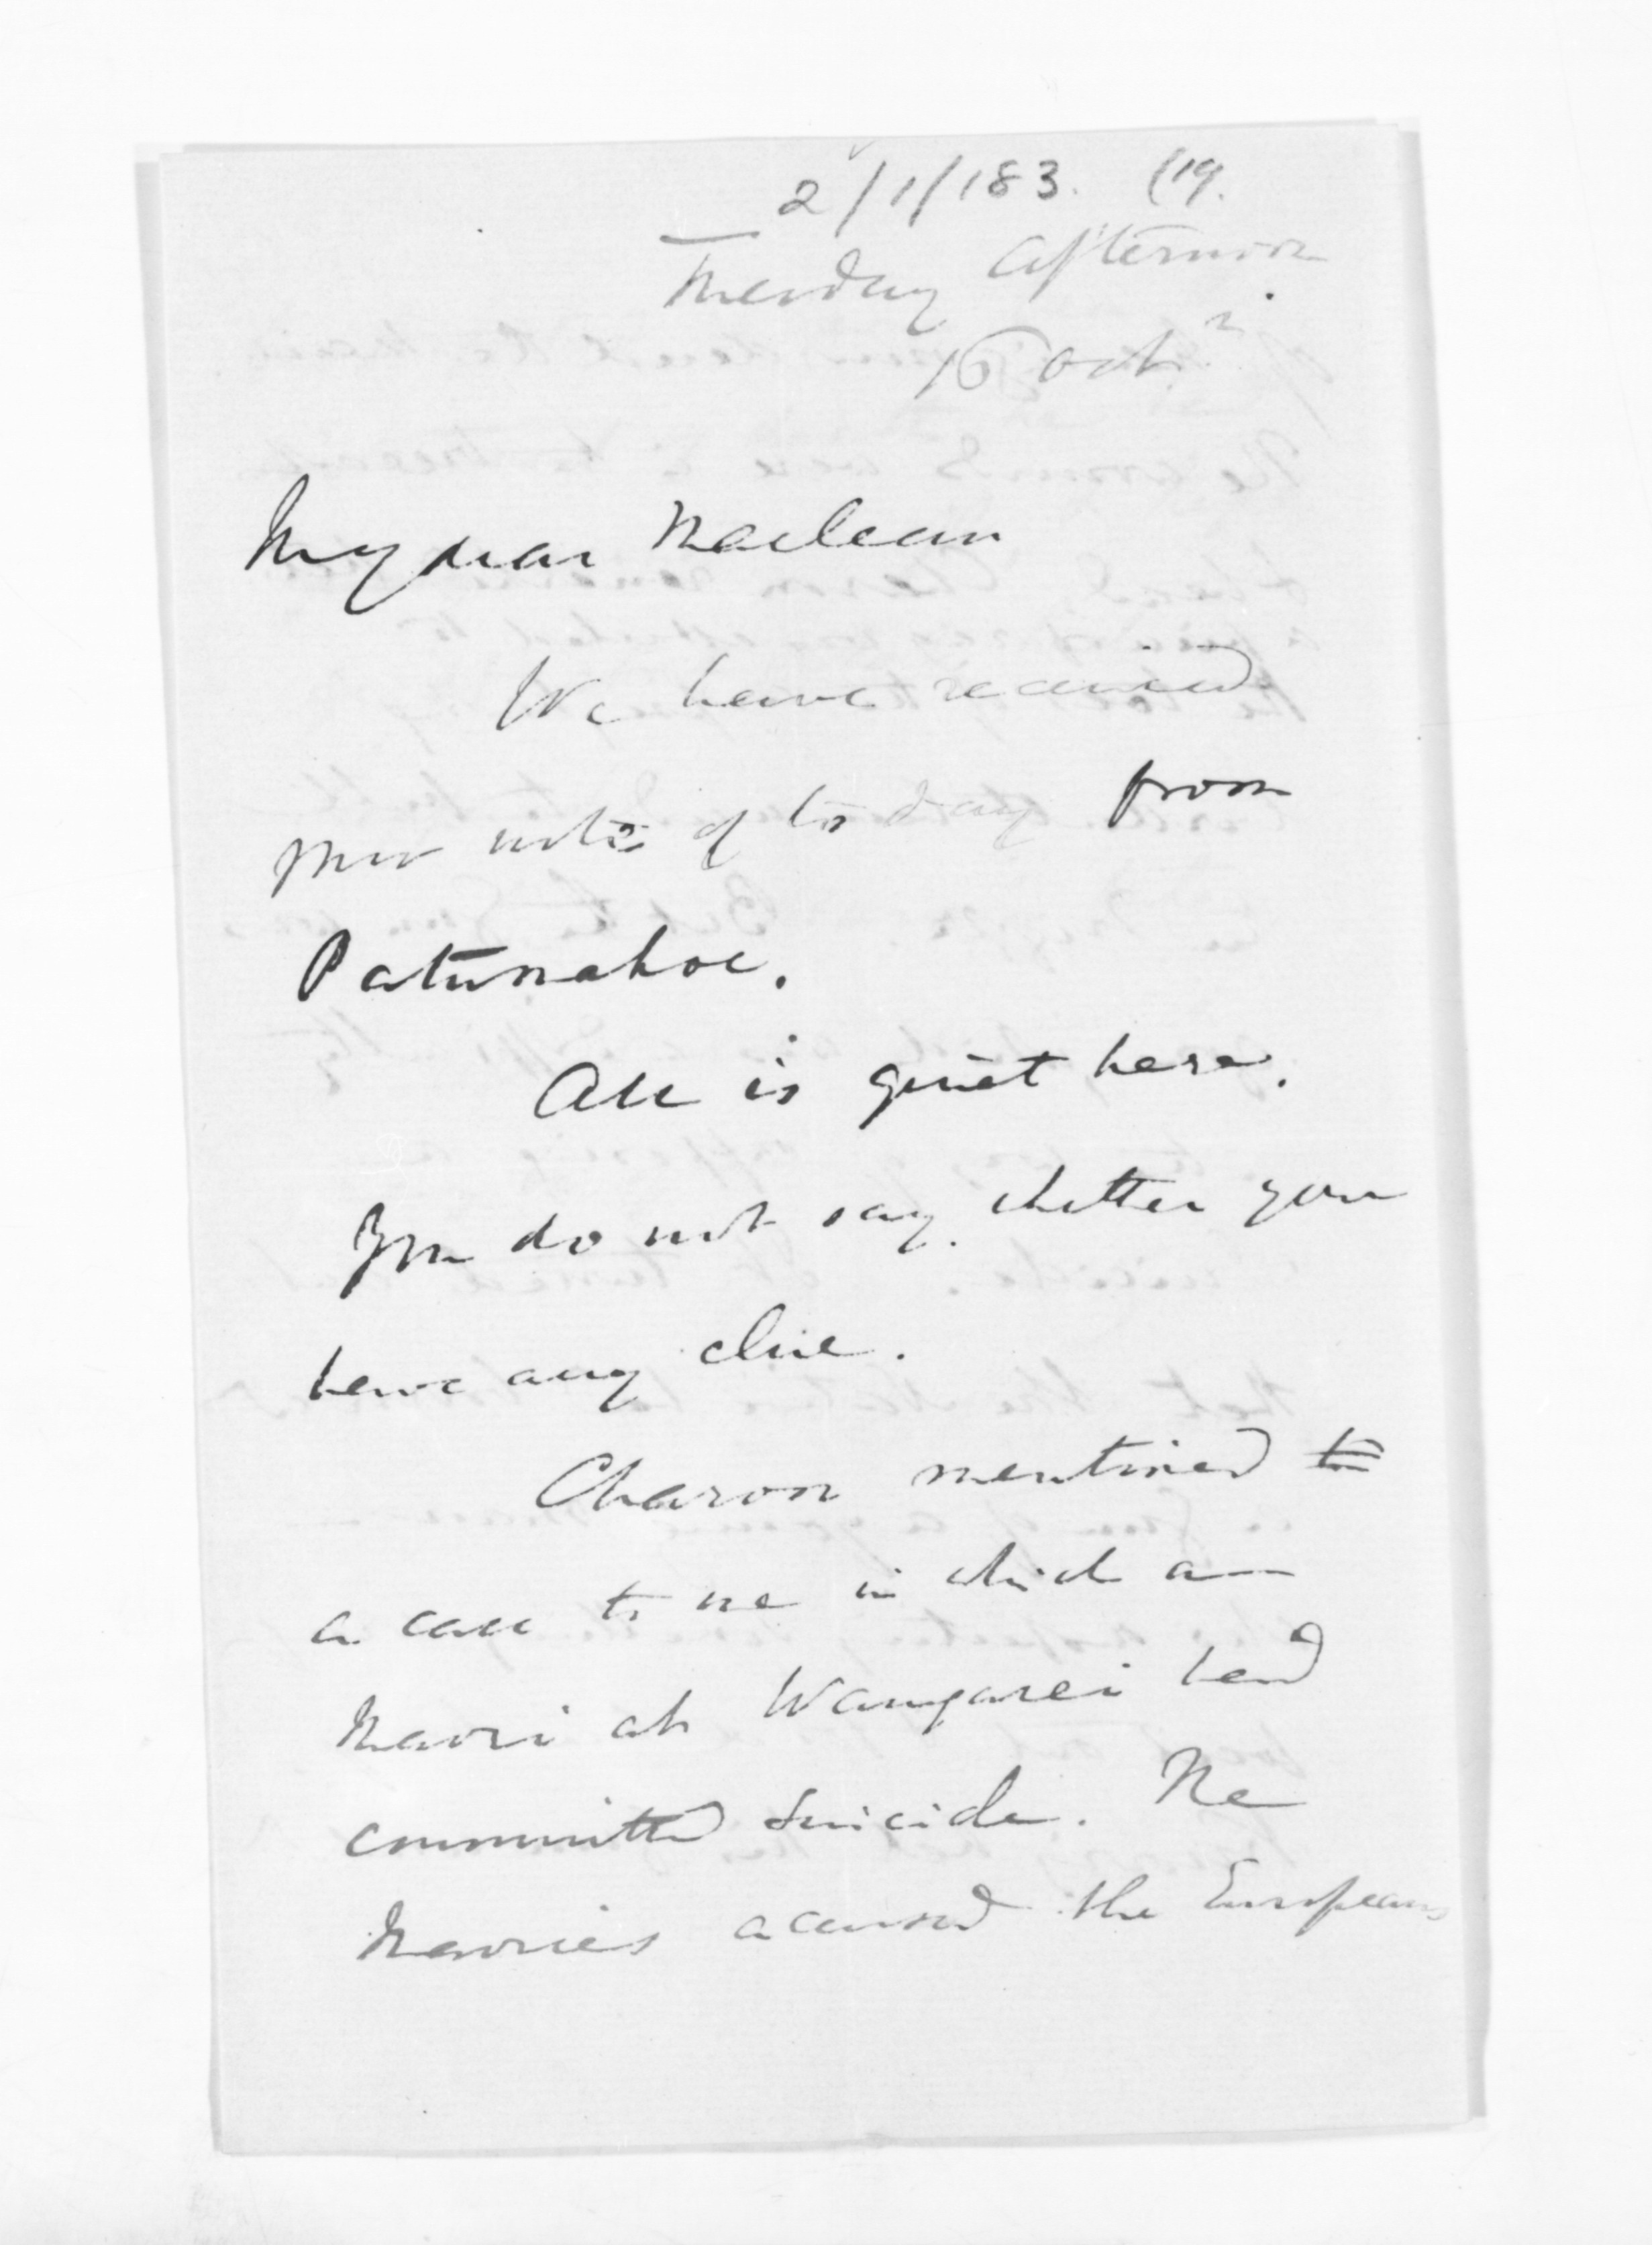 2/1/183. (19.
Tuesday afternoon
16 Oct.
My dear Maclean
We have received
your note of to day from
Patumahoe.
All is quiet here.
You do not say whether you
have any clue.
Charon mentioned to
a case to me in which a
Maori at Wangarei had
committed suicide. The
Maories accused the Europeans